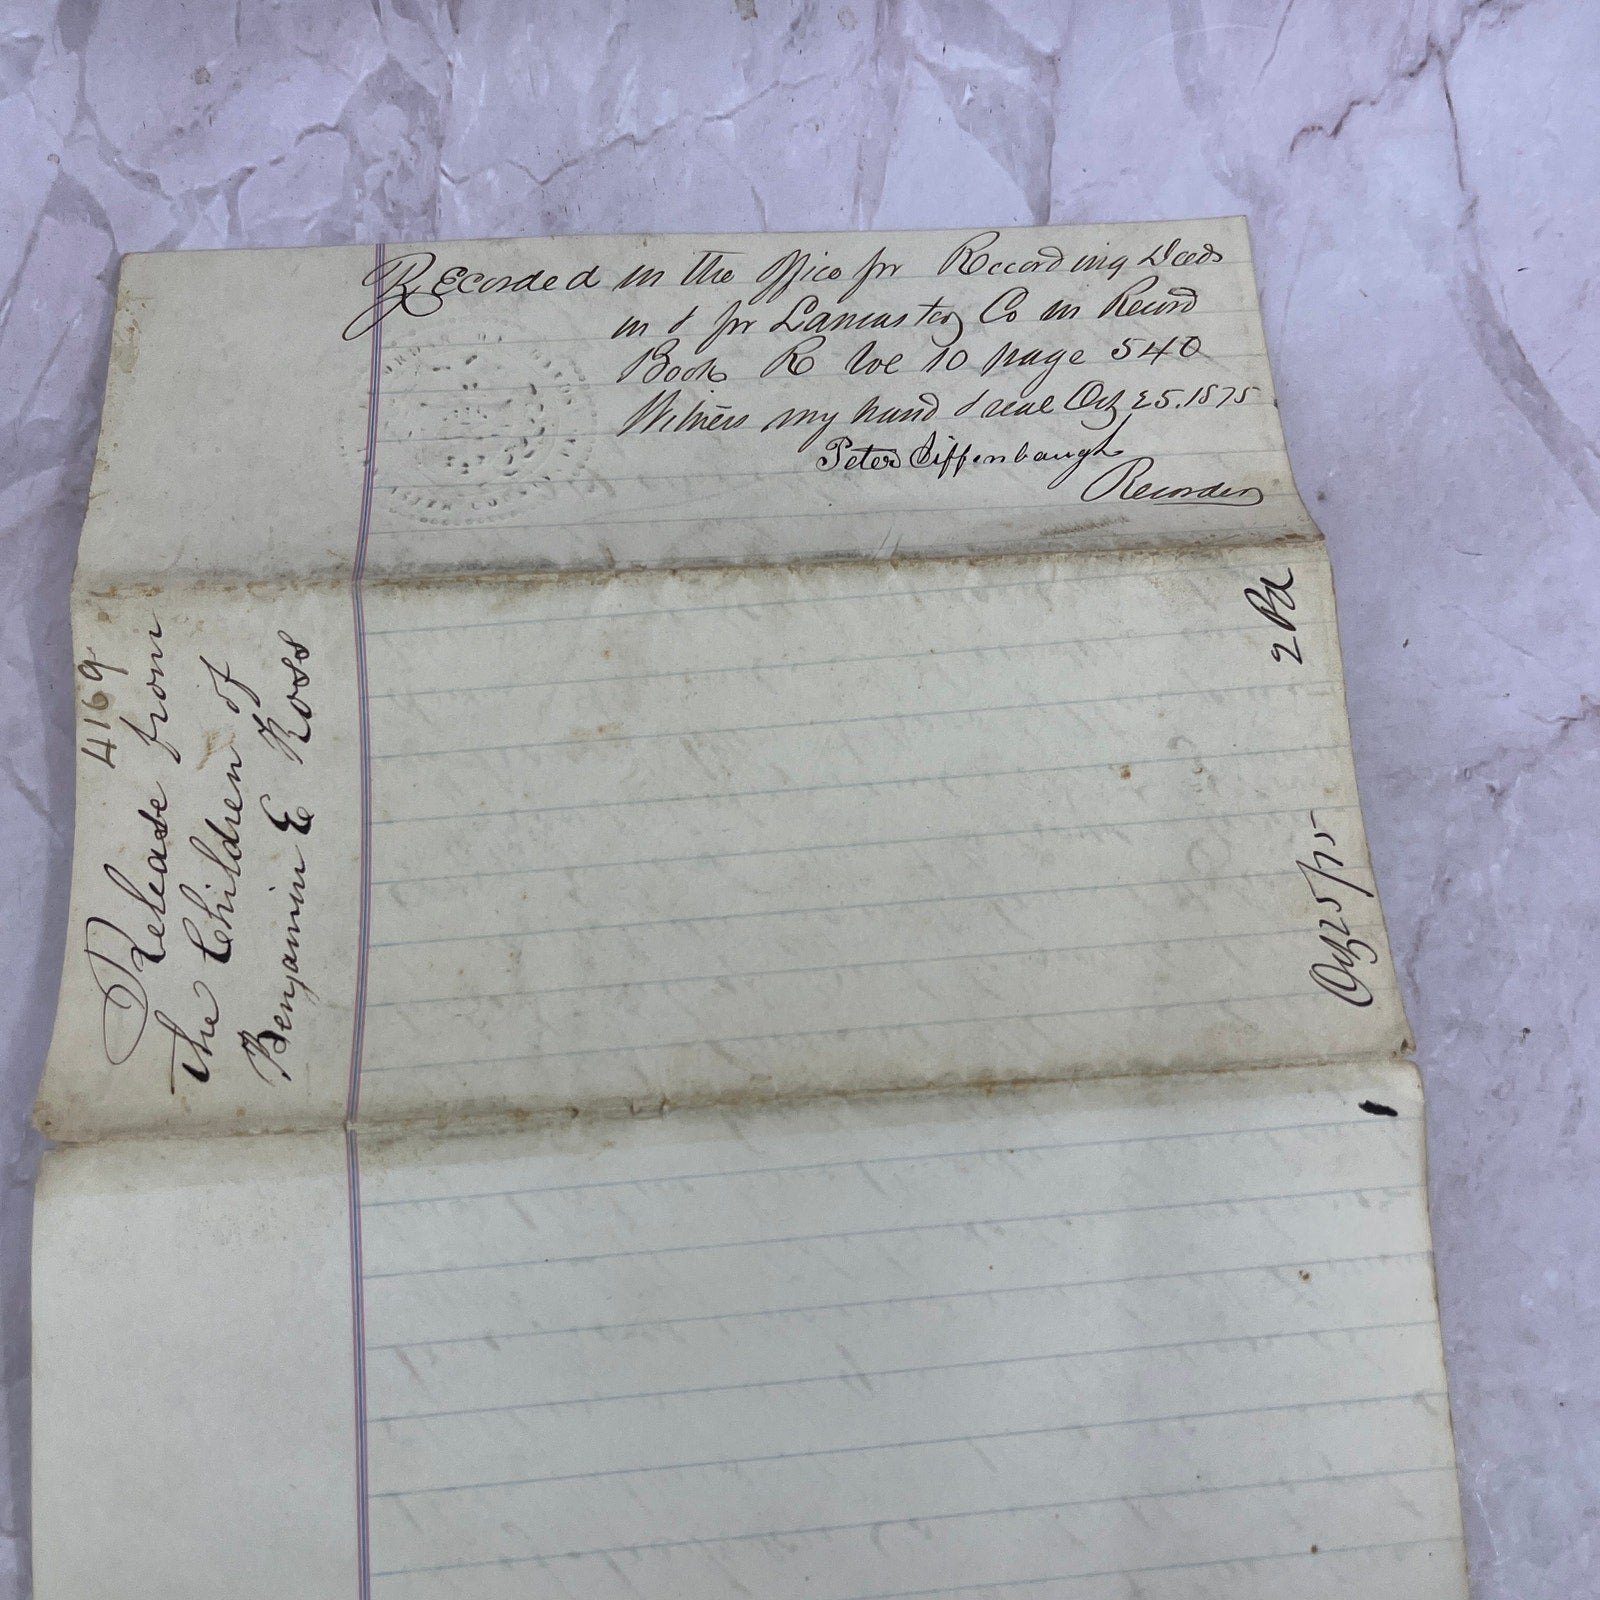 Recorded in the Office for Recording Deeds
in & for Lancaster Co in Record
Book R Vol 10 page 540
Witness my hand & seal Oct 25. 1875
Peter Diffenbaugh
Recorder
4169
Release from
the Children of
Benjamin E Ross
2 Pd
Oct 25/75